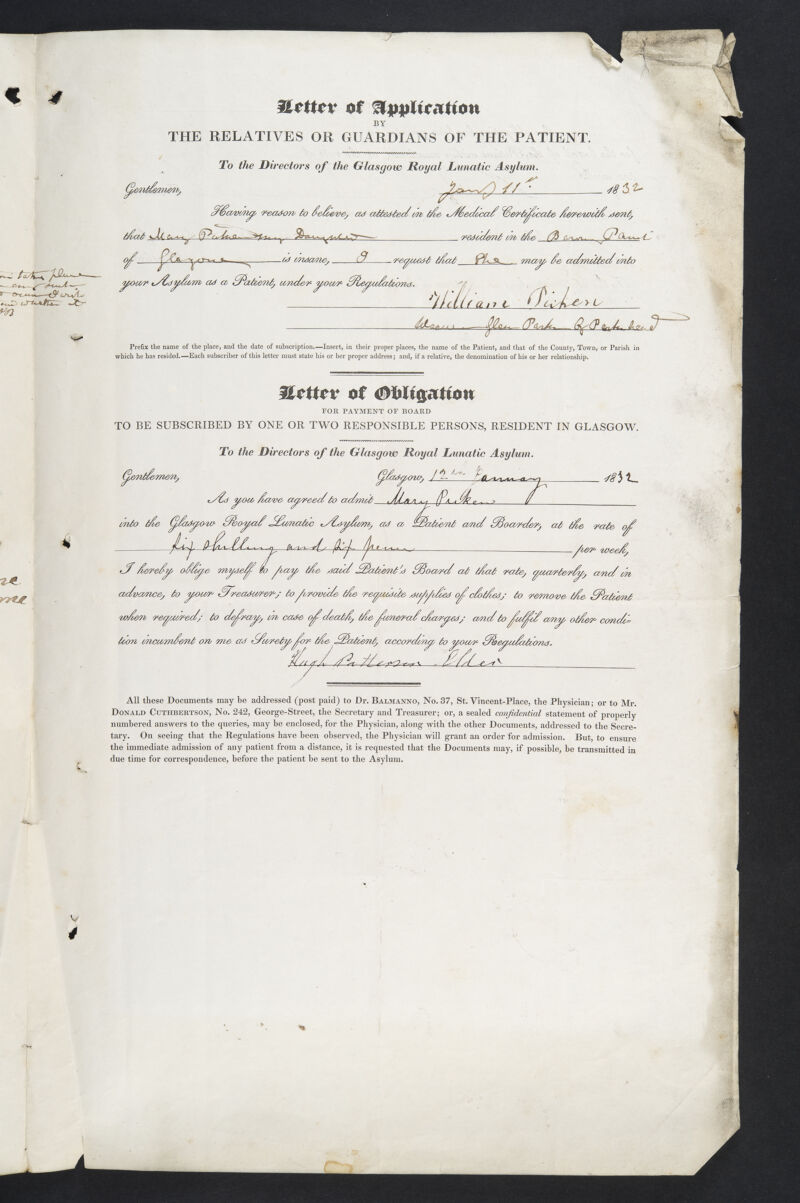 Letter of Application
BY
THE RELATIVES OR GUARDIANS OF THE PATIENT.
To the Directors of the Glasgow Royal Lunatic Asylum.
Gentlemen, Jany 11th 1832
Having reason to believe, as attested in the Medical Certificate herewith sent,
that Mary Picken my Daughter resident in the Baron
of Glasgow is insane, I request that She may be admitted into
your Asylum as a Patient, under your Regulations.
William Picken
of Parkhead
Prefix the name of the place, and the date of subscription.—Insert, in their proper places, the name of the Patient, and that of the County, Town, or Parish in
which he has resided.—Each subscriber of this letter must state his or her proper address; and, if a relative, the denomination of his or her relationship.
Letter of Obligation
FOR PAYMENT OF BOARD
TO BE SUBSCRIBED BY ONE OR TWO RESPONSIBLE PERSONS, RESIDENT IN GLASGOW.
To the Directors of the Glasgow Royal Lunatic Asylum.
Gentlemen, Glasgow, 12th January 1832
As you have agreed to admit Mary Picken
into the Glasgow Royal Lunatic Asylum, as a Patient and Boarder, at the rate of
six shilling and six pence per week,
I hereby oblige myself to pay the said Patient's Board at that rate, quarterly, and in
advance, to your Treasurer; to provide the requisite supplies of clothes; to remove the Patient
when required; to defray, in case of death, the funeral charges; and to fulfil any other condi-
tion incumbent on me as Surety for the Patient, according to your Regulations.
Hugh Patterson Elder
All these Documents may be addressed (post paid) to Dr. BALMANNO, No. 37, St. Vincent-Place, the Physician; or to Mr.
DONALD CUTHBERTSON, No. 242, George-Street, the Secretary and Treasurer; or, a sealed confidential statement of properly
numbered answers to the queries, may be enclosed, for the Physician, along with the other Documents, addressed to the Secre-
tary. On seeing that the Regulations have been observed, the Physician will grant an order for admission. But, to ensure
the immediate admission of any patient from a distance, it is requested that the Documents may, if possible, be transmitted in
due time for correspondence, before the patient be sent to the Asylum.